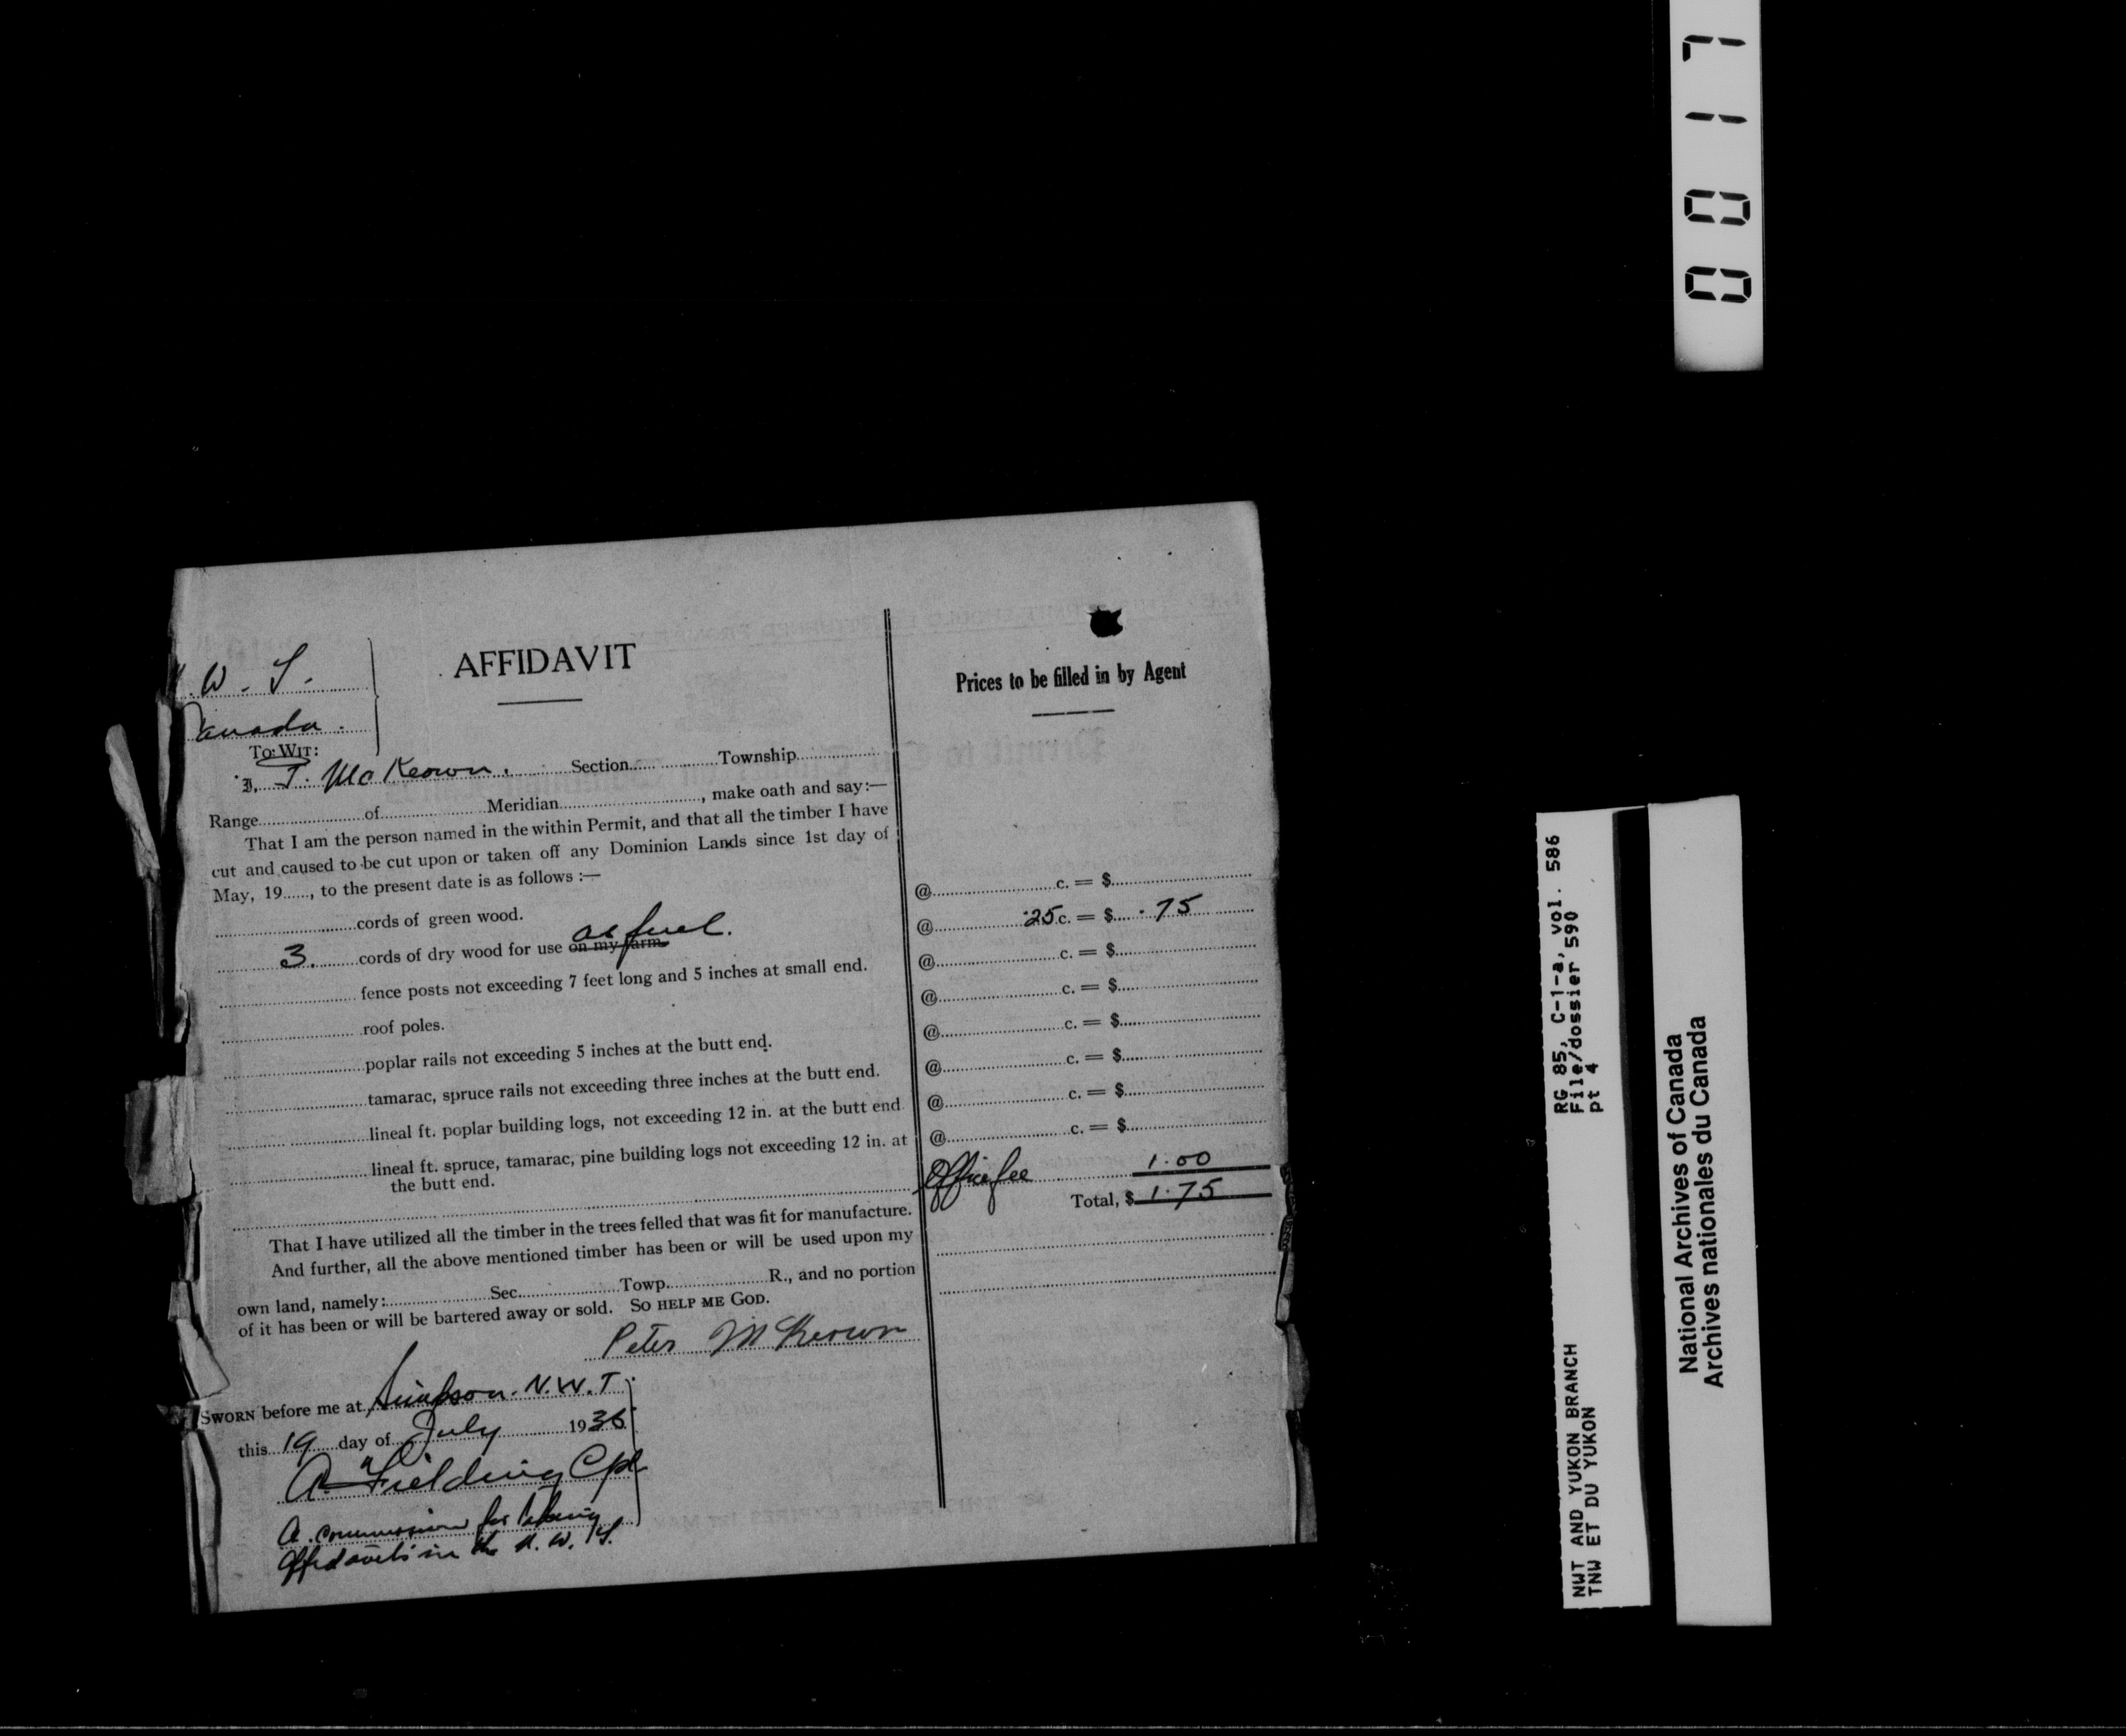 0017
. W. T.
Canada.
AFFIDAVIT
TO WIT:
I, J. McKeown. Section Township
Range of Meridian , make oath and say:—
That I am the person named in the within Permit, and that all the timber I have
cut and caused to be cut upon or taken off any Dominion Lands since 1st day of
May, 19......, to the present date is as follows :—
cords of green wood.
as fuel.
3. cords of dry wood for use on my farm
fence posts not exceeding 7 feet long and 5 inches at small end.
roof poles.
poplar rails not exceeding 5 inches at the butt end.
tamarac, spruce rails not exceeding three inches at the butt end.
lineal ft. poplar building logs, not exceeding 12 in. at the butt end
lineal ft. spruce, tamarac, pine building logs not exceeding 12 in. at
the butt end.
That I have utilized all the timber in the trees felled that was fit for manufacture.
And further, all the above mentioned timber has been or will be used upon my
own land, namely: Sec. Towp. R., and no portion
of it has been or will be bartered away or sold. SO HELP ME GOD.
Peter McKeown
SWORN before me at Simpson. N.W.T.
this 19 day of July 1936
A. Fielding Cpl
A. commissioner for taking
affidavits in the N. W. T.
Prices to be filled in by Agent
@ c. = $
@ 25 c. = $ .75
@ c. = $
@ c. = $
@ c. = $
@ c. = $
@ c. = $
@ c. = $
Office fee 1.00
Total, $ 1.75
RG 85, C-1-a, vol. 586
File/dossier 590
pt 4
NWT AND YUKON BRANCH
TNW ET DU YUKON
National Archives of Canada
Archives nationales du Canada